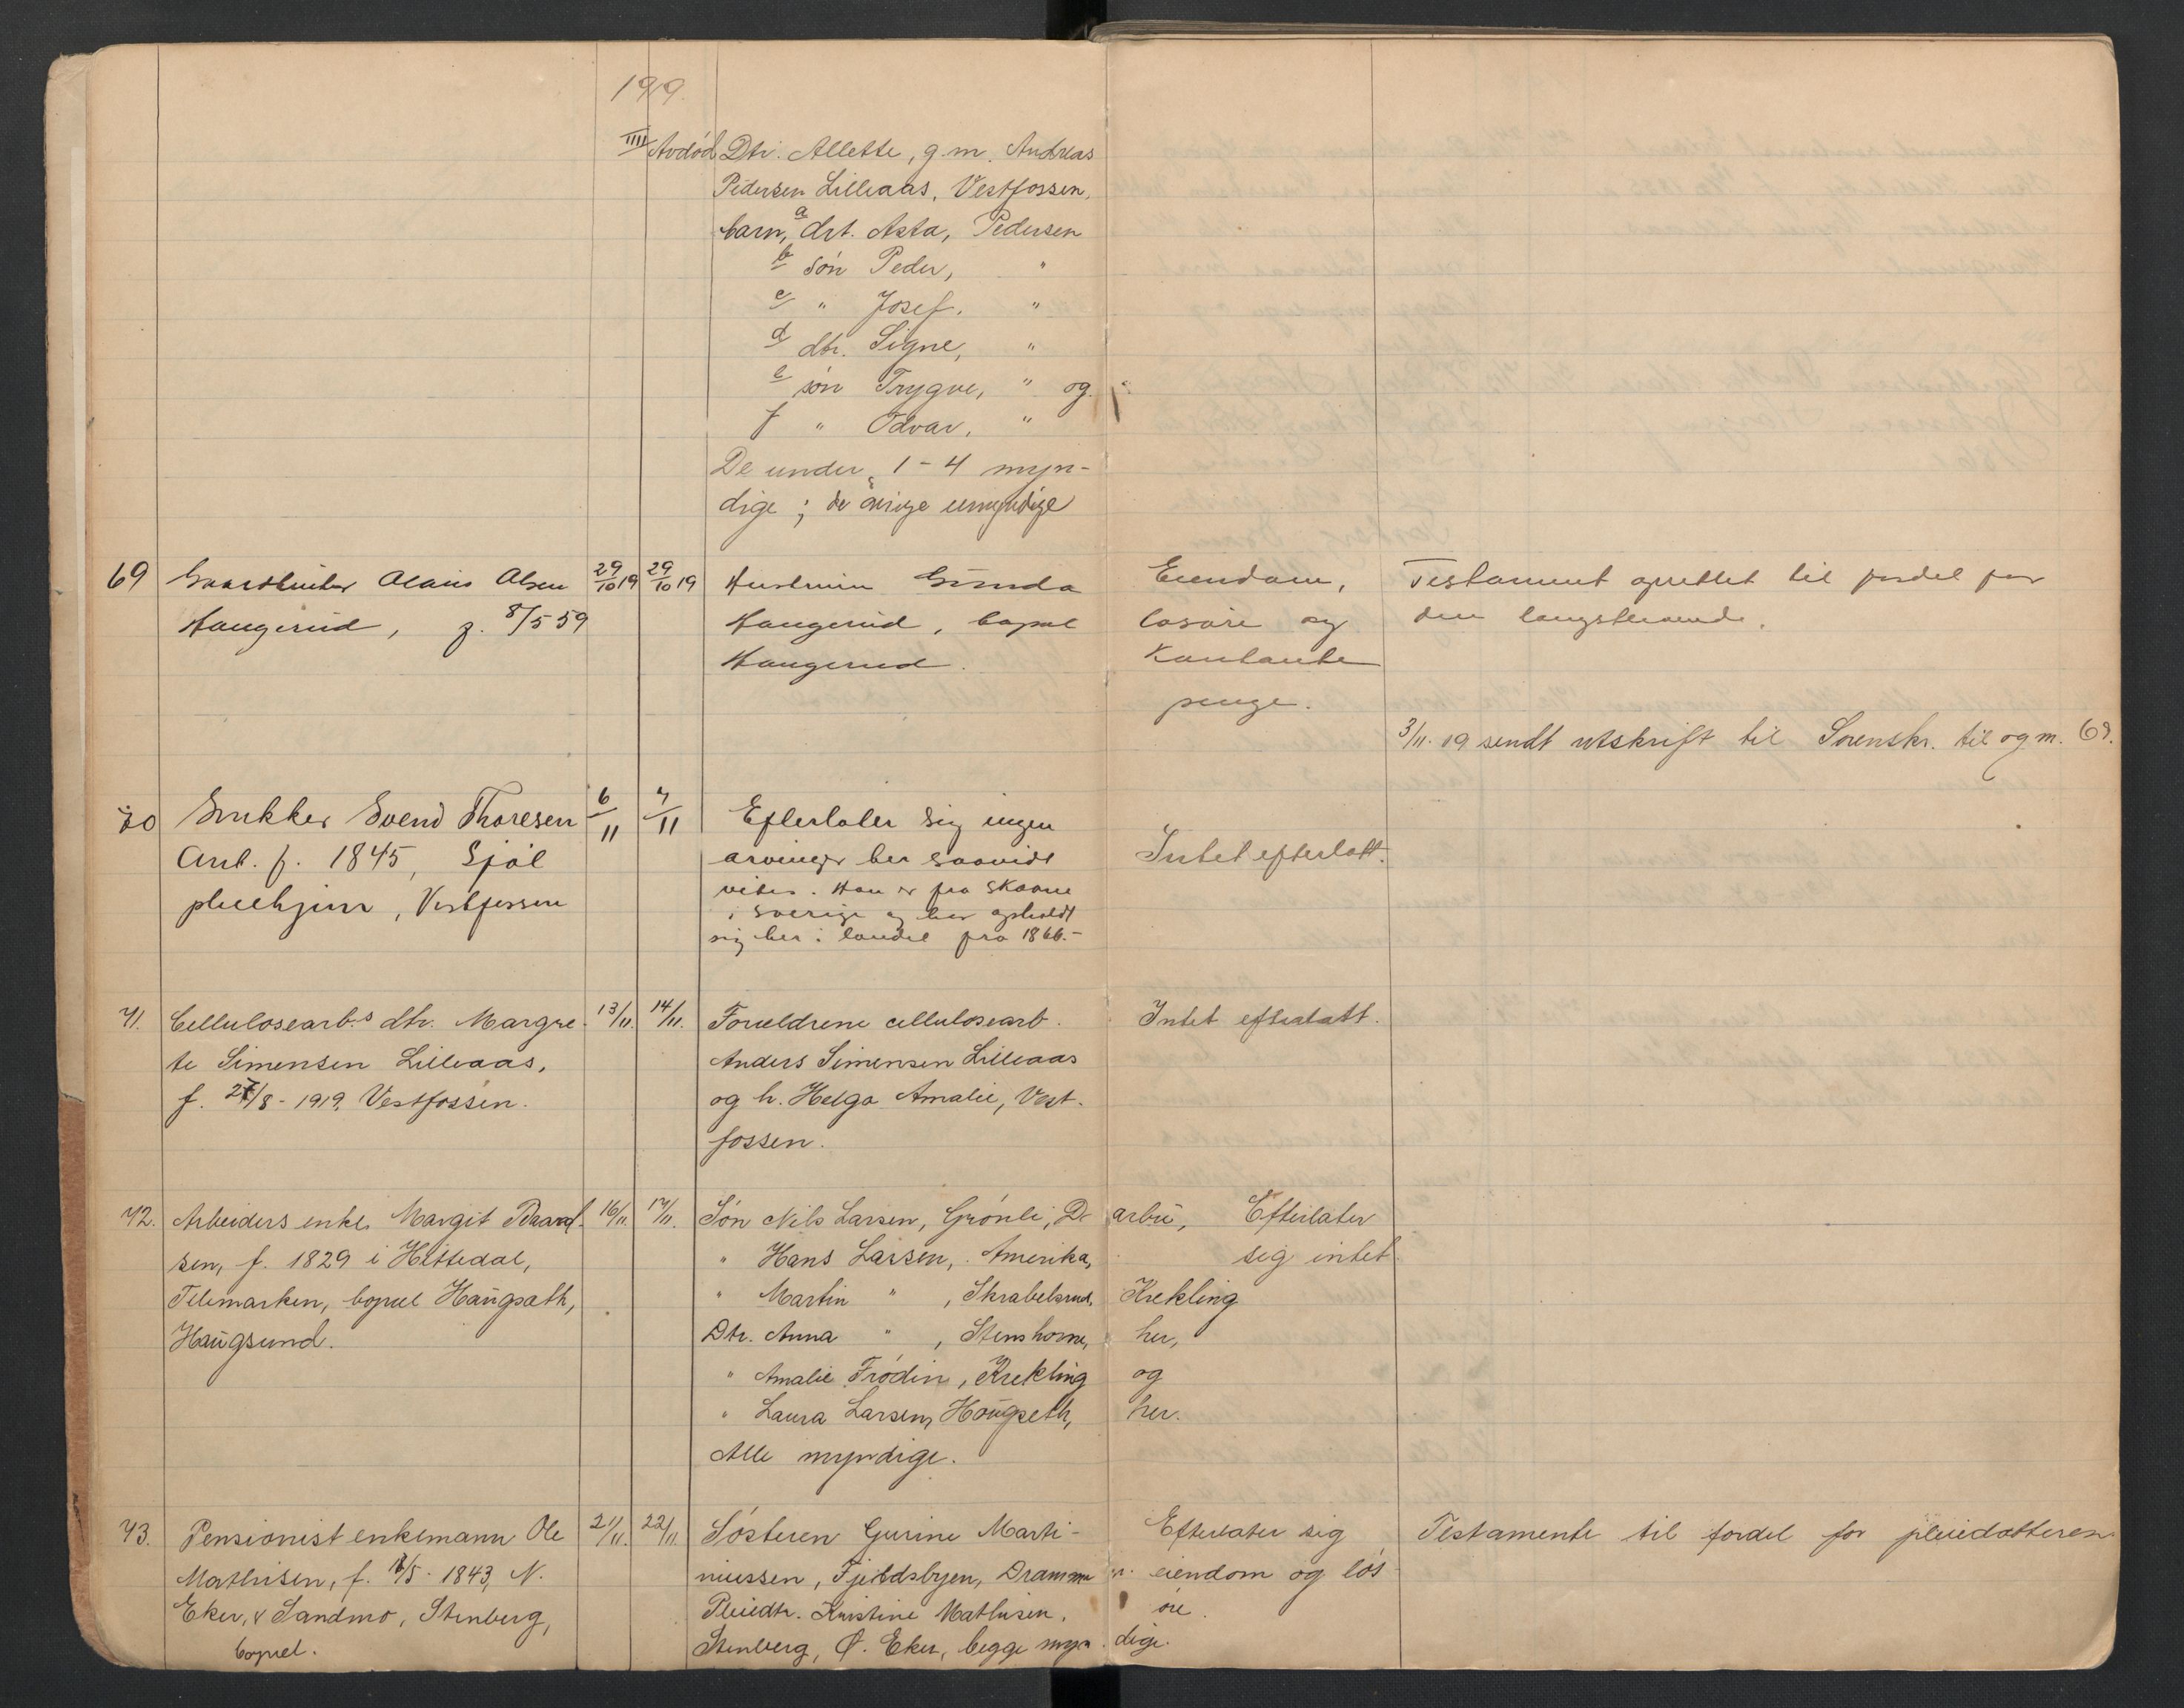 1919.
IIII Avdød Dtr. Allette, g.m. Andreas
Pedersen Lilleaas, Vestfossen,
barn, a drt. Asta, Pedersen
b søn Peder, "
c " Josef. "
d dtr. Signe, "
e søn Trygve, " og
f " Odvar. "
De under 1-4 myn-
dige; de øvrige umyndige
69 Gaardbruker Olaus Olsen 29/10 19 29/10 19 Hustruen Gunda Eiendom, Testament oprettet til fordel for
Haugerud, f. 8/5 59 Haugerud, bopæl løsøre og den længstlevende.
Haugerud. Kontante
penge.
3/11. 19 sendt utskrift til Sorenskr. til og m. 69.
70 Snekker Svend Thoresen 6/11 7/11 Efterlater sig ingen
Arb. f. 1845, Sjøl arvinger her saavidt Intet efterlatt.
pleiehjem, Vestfossen vites. Han er fra Skaane
i Sverige og har opholdt
sig her i landet fra 1866.-
71. Cellulosearb.s dtr. Margre- 13/11. 14/11. Forældrene cellulosearb. Intet efterlatt.
te Simensen Lilleaas, Anders Simensen Lilleaas
f. 27/8 - 1919, Vestfossen. og h. Helga Amalie, Vest-
fossen.
72. Arbeiders enke Margit Baard- 16/11. 17/11. Søn Nils Larsen, Grønli, Darbu, Efterlater
sen, f. 1829 i Hittedal, " Hans Larsen, Amerika, sig intet.
Telemarken, bopæl Haugsath, " Martin " , Skrabelsrud, Krekling
Haugsund. Dtr. Anna " , Stenshorne, her,
" Amalie Frödin, Krekling og
" Laura Larsen, Haugseth, her.
Alle myndige.
73. Pensionist enkemann Ole 21/11. 22/11. Søsteren Gurine Marti- Efterlater sig Testamente til fordel for pleiedatteren
Mathisen, f. /5 - 1843, N. niussen, Fjeldsbyen, Drammen. eiendom og løs
Eker, Sandmo, Stenberg, Pleiedtr. Kristine Mathisen, øre.
bopæl. Stenberg, Ø. Eker, begge myndige.